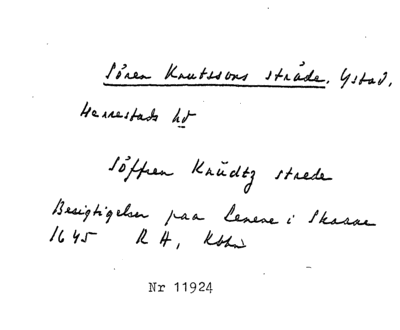 Sören Knutssons sträde. Ystad,
Herrestads hd
Söffren Knüdtz strede
Besigtigelser paa Lenene i Skaane
1645 RA, Kbhn
Nr 11924